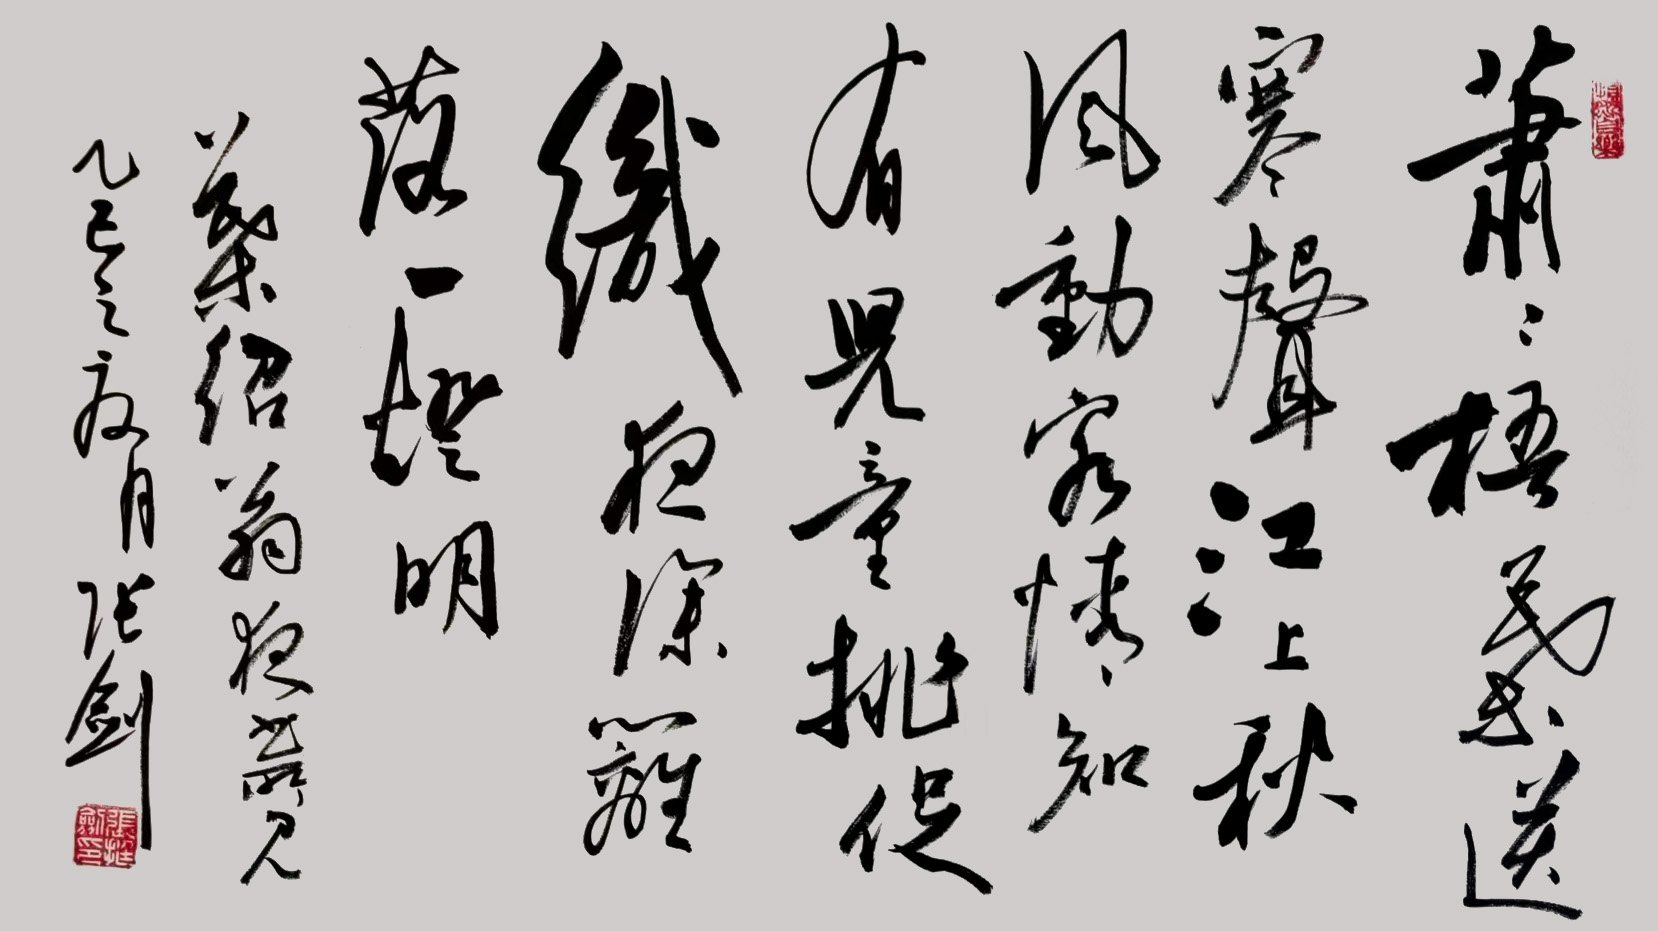 蕭〻梧葉送
寒聲江上秋
風動客情知
有兒童挑促
織夜深籬
落一燈明
葉紹翁夜書所見
乙巳之夏月張劍